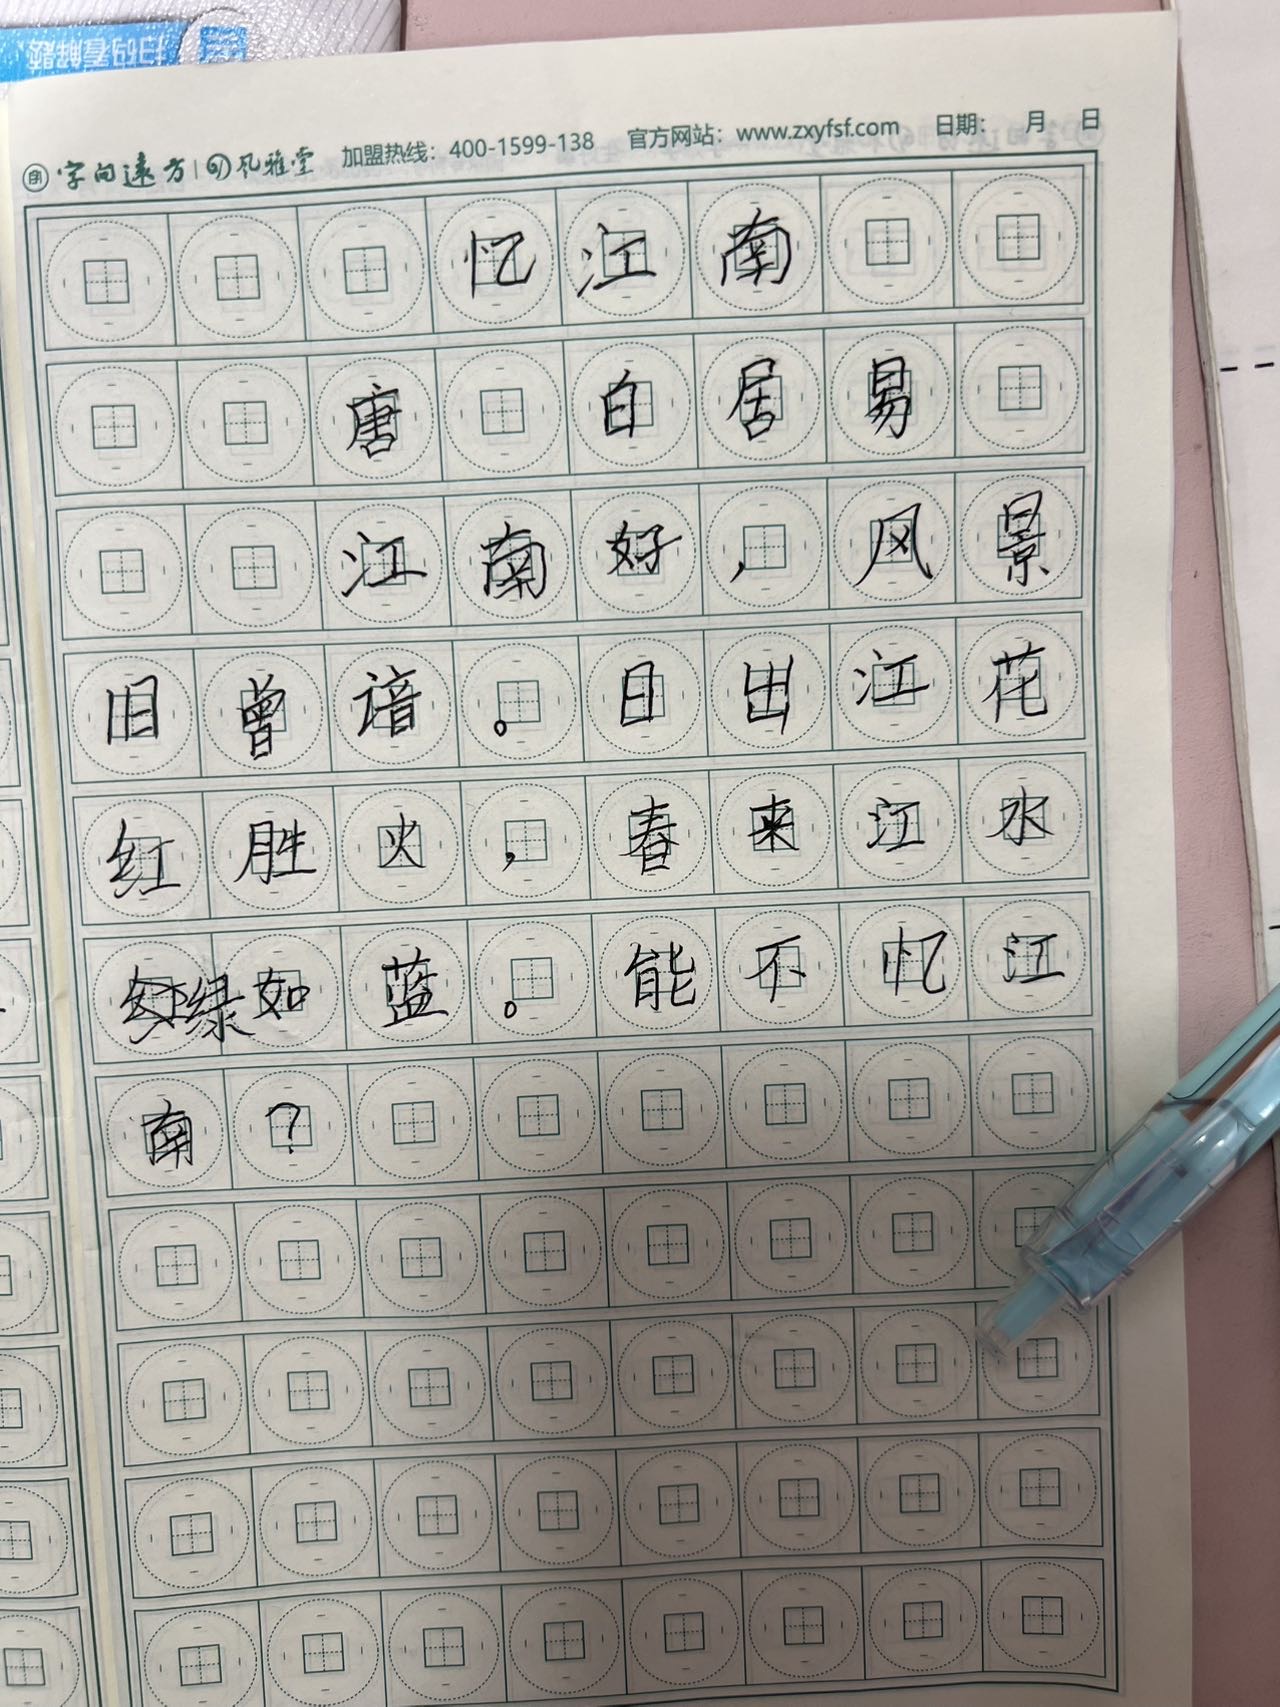 扫码看解题
字向远方 四风雅堂 加盟热线：400-1599-138 官方网站：www.zxyfsf.com 日期： 月 日
忆江南
唐 白居易
江南好，风景
旧曾谙。日出江花
红胜火，春来江水
绿如蓝。能不忆江
南？